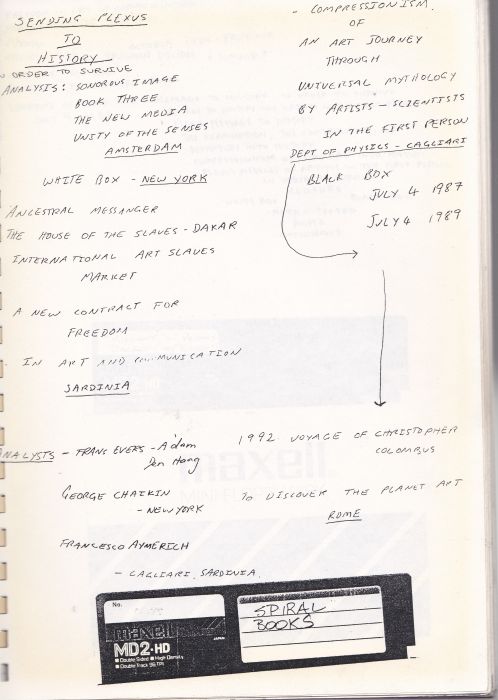 SENDING PLEXUS
TO
HISTORY
N ORDER TO SURVIVE
ANALYSIS: SONOROUS IMAGE
BOOK THREE
THE NEW MEDIA
UNITY OF THE SENSES
AMSTERDAM
WHITE BOX - NEW YORK
ANCESTRAL MESSANGER
THE HOUSE OF THE SLAVES - DAKAR
INTERNATIONAL ART SLAVES
MARKET
A NEW CONTRACT FOR
FREEDOM
IN ART AND COMMUNICATION
SARDINIA
NALYSTS - FRANS EVERS - A'dam
Den Haag
GEORGE CHAIKIN
- NEW YORK
FRANCESCO AYMERICH
- CAGLIARI, SARDINIA.
- COMPRESSIONISM.
OF
AN ART JOURNEY
THROUGH
UNIVERSAL MYTHOLOGY
BY ARTISTS - SCIENTISTS
IN THE FIRST PERSON
DEPT OF PHYSICS - CAGLIARI
BLACK BOX
JULY 4 1987
JULY 4 1989
1992 VOYAGE OF CHRISTOPHER
COLOMBUS
TO DISCOVER THE PLANET ART
ROME
maxell
No.
maxell
JAPAN
MD2-HD
Double Sided High Density
Double Track (96 TPI)
SPIRAL
BOOKS